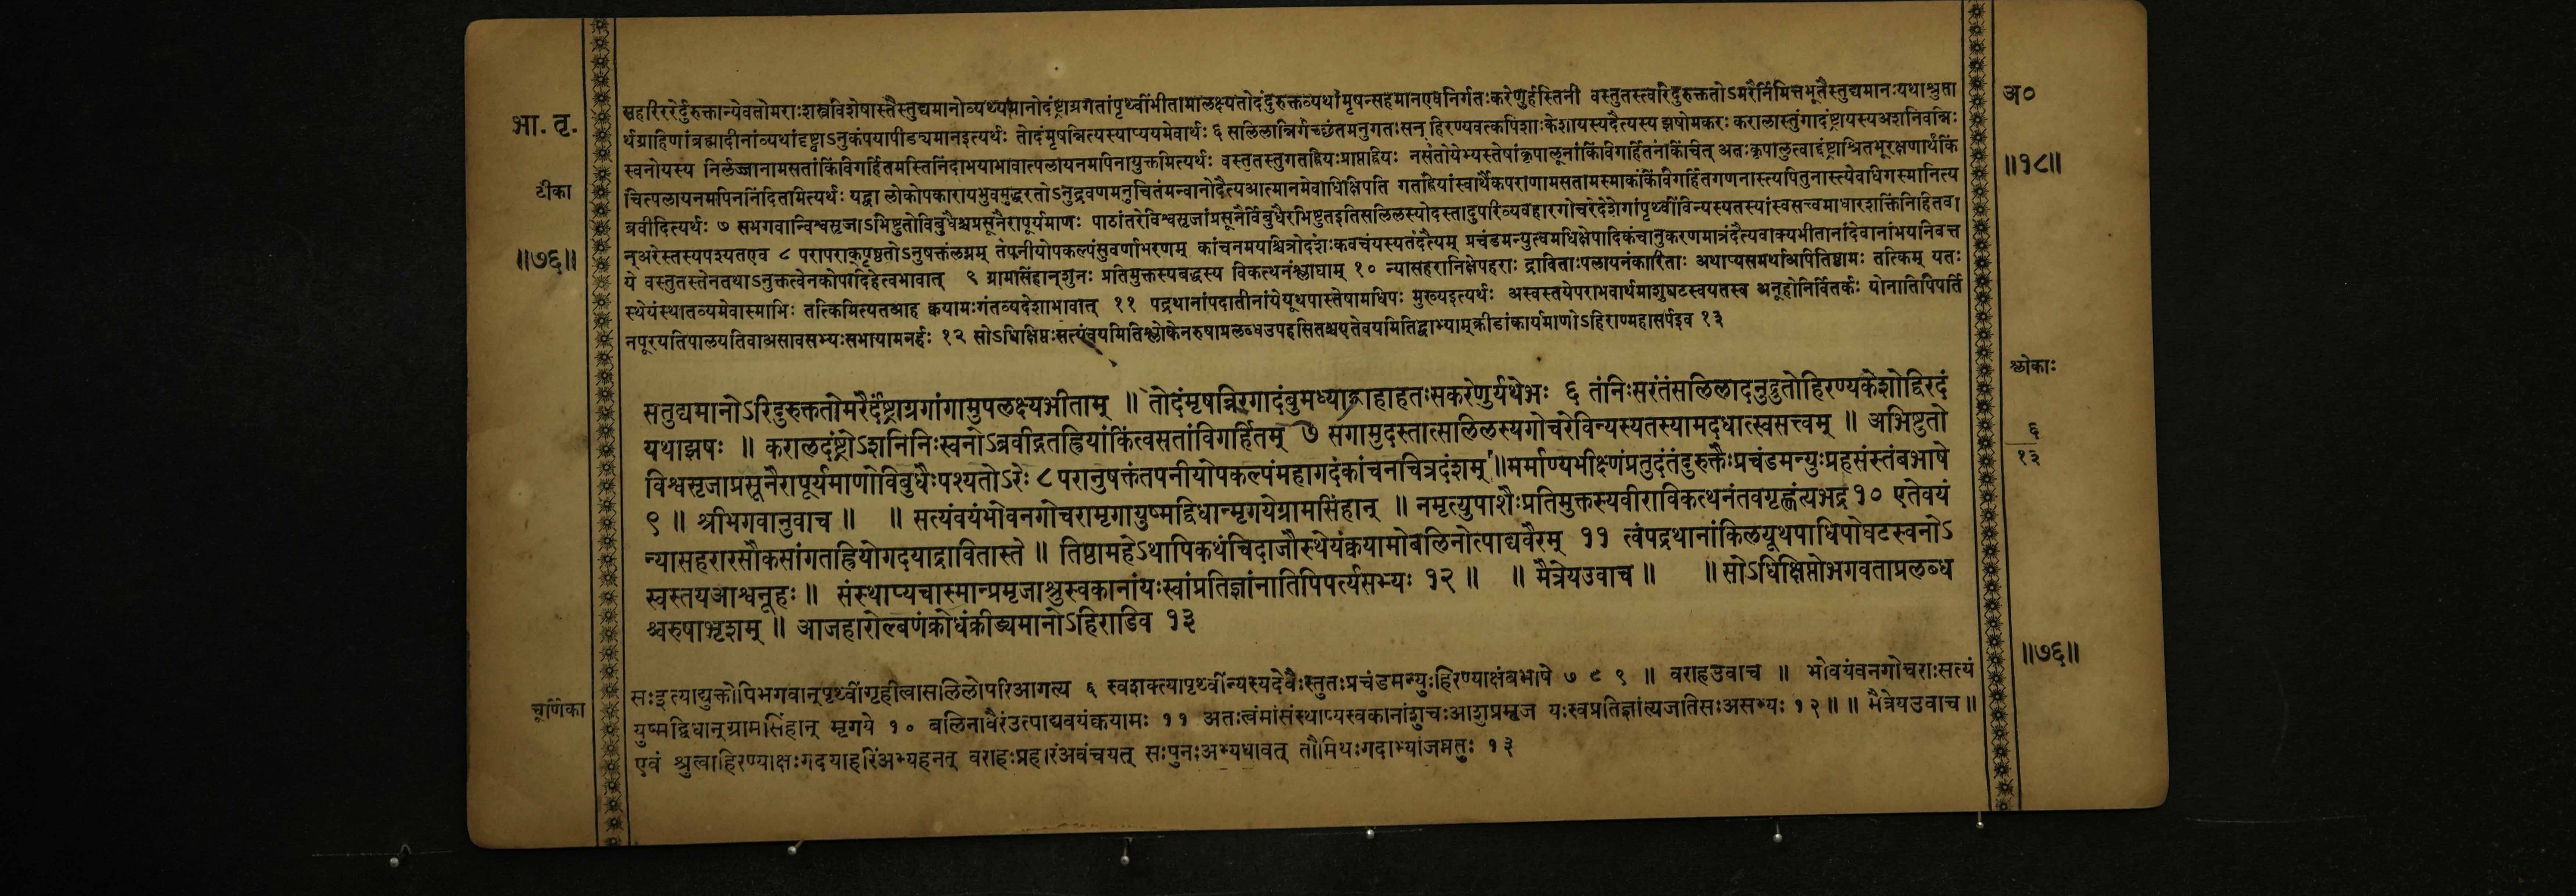 भा. तृ.
टीका
॥७६॥
चूर्णिका
सहरिररेर्दुरुक्तान्येवतोमराःशस्त्रविशेषास्तैस्तुद्यमानोव्यथ्यमानोदंष्ट्राग्रगतांपृथ्वींभीतामालक्ष्यतोदंदुरुक्तव्यथांमृषन्सहमानएवनिर्गतःकरेणुर्हस्तिनी वस्तुतस्त्वरिदुरुक्ततोऽमरैर्निमित्तभूतैस्तुद्यमानःयथाश्रुता
र्थग्राहिणांब्रह्मादीनांव्यथांदृष्ट्वाऽनुकंपयापीड्यमानइत्यर्थः तोदंमृषन्नित्यस्याप्ययमेवार्थः ६ सलिलान्निर्गच्छंतमनुगतःसन् हिरण्यवत्कपिशाःकेशायस्यदैत्यस्य झषोमकरः करालास्तुंगादंष्ट्रायस्यअशनिवन्निः
स्वनोयस्य निर्लज्जानामसतांकिंविगर्हितमस्तिनिंदाभयाभावात्पलायनमपिनायुक्तमित्यर्थः वस्तुतस्तुगतह्रियःप्राप्तह्रियः नसंतोयेभ्यस्तेषांकृपालूनांकिंविगर्हितंनकिंचित् अतःकृपालुत्वाद्दंष्ट्राश्रितभूरक्षणार्थंकिं
चित्पलायनमपिननिंदितमित्यर्थः यद्वा लोकोपकारायभुवमुद्धरतोऽनुद्रवणमनुचितंमन्वानोदैत्यआत्मानमेवाधिक्षिपति गतह्रियांस्वार्थैकपराणामसतामस्माकंकिंविगर्हितगणनास्त्यपितुनास्त्येवाधिगस्मानित्य
ब्रवीदित्यर्थः ७ सभगवान्विश्वसृजाऽभिष्टुतोविबुधैश्चप्रसूनैरापूर्यमाणः पाठांतरेविश्वसृजांप्रसूनैर्विबुधैरभिष्टुतइतिसलिलस्योदस्तादुपरिव्यवहारगोचरेदेशेगांपृथ्वींविन्यस्यतस्यांस्वसत्त्वमाधारशक्तिंनिहितवा
न्अरेस्तस्यपश्यतएव ८ परापराकपृष्ठतोऽनुषक्तंलग्नम् तपनीयोपकल्पंसुवर्णाभरणम् कांचनमयश्चित्रोदंशःकवचंयस्यतंदैत्यम् प्रचंडमन्युत्वमधिक्षेपादिकंचानुकरणमात्रंदैत्यवाक्यभीतानांदेवानांभयनिवृत्त
ये वस्तुतस्तेनतथाऽनुक्तत्वेनकोपादिहेत्वभावात् ९ ग्रामसिंहान्शुनः प्रतिमुक्तस्यबद्धस्य विकत्थनंश्लाघाम् १० न्यासहरानिक्षेपहराः द्राविताःपलायनंकारिताः अथाप्यसमर्थाअपितिष्ठामः तत्किम् यतः
स्थेयंस्थातव्यमेवास्माभिः तत्किमित्यतआह क्वयामःगंतव्यदेशाभावात् ११ पद्रथानांपदातीनांयेयूथपास्तेषामधिपः मुख्यइत्यर्थः अस्वस्तयेपराभवार्थमाशुघटस्वयतस्व अनूहोनिर्वितर्कः योनातिपिपर्ति
नपूरयतिपालयतिवाअसावसभ्यःसभायामनर्हः १२ सोऽधिक्षिप्तःसत्यंवयमितिश्लोकेनरुषाप्रलब्धउपहसितश्चएतेवयमितिद्वाभ्याम्क्रीडांकार्यमाणोऽहिराण्महासर्पइव १३
सतुद्यमानोऽरिदुरुक्ततोमरैर्दंष्ट्राग्रगांगामुपलक्ष्यभीताम् ॥ तोदंमृषन्निरगादंबुमध्याद्ग्राहाहतःसकरेणुर्यथेभः ६ तंनिःसरंतंसलिलादनुद्रुतोहिरण्यकेशोद्विरदं
यथाझषः ॥ करालदंष्ट्रोऽशनिनिःस्वनोऽब्रवीद्गतह्रियांकिंत्वसतांविगर्हितम् ७ सगामुदस्तात्सलिलस्यगोचरेविन्यस्यतस्यामदधात्स्वसत्त्वम् ॥ अभिष्टुतो
विश्वसृजाप्रसूनैरापूर्यमाणोविबुधैःपश्यतोऽरेः ८ परानुषक्तंतपनीयोपकल्पंमहागदंकांचनचित्रदंशम् ॥ मर्माण्यभीक्ष्णंप्रतुदंतंदुरुक्तैःप्रचंडमन्युःप्रहसंस्तंबभाषे
९ ॥ श्रीभगवानुवाच ॥ ॥ सत्यंवयंभोवनगोचरामृगायुष्मद्विधान्मृगयेग्रामसिंहान् ॥ नमृत्युपाशैःप्रतिमुक्तस्यवीराविकत्थनंतवगृह्णंत्यभद्र १० एतेवयं
न्यासहरारसौकसांगतह्रियोगदयाद्रावितास्ते ॥ तिष्ठामहेऽथापिकथंचिदाजौस्थेयंक्वयामोबलिनोत्पाद्यवैरम् ११ त्वंपद्रथानांकिलयूथपाधिपोघटस्वनोऽ
स्वस्तयआश्वनूहः ॥ संस्थाप्यचास्मान्प्रमृजाश्रुस्वकानांयःस्वांप्रतिज्ञांनातिपिपर्त्यसभ्यः १२ ॥ ॥ मैत्रेयउवाच ॥ ॥ सोऽधिक्षिप्तोभगवताप्रलब्ध
श्चरुषाभृशम् ॥ आजहारोल्बणंक्रोधंक्रीड्यमानोऽहिराडिव १३
सःइत्याद्युक्तोपिभगवान्पृथ्वींगृहीत्वासलिलोपरिआगत्य ६ स्वशक्त्यापृथ्वींन्यस्यदेवैःस्तुतःप्रचंडमन्युःहिरण्याक्षंबभाषे ७ ८ ९ ॥ वराहउवाच ॥ भोवयंवनगोचराःसत्यं
युष्मद्विधान्ग्रामसिंहान् मृगये १० बलिनावैरंउत्पाद्यवयंक्वयामः ११ अतःत्वंमांसंस्थाप्यस्वकानांशुचःआशुप्रमृज यःस्वप्रतिज्ञांत्यजतिसःअसभ्यः १२ ॥ ॥ मैत्रेयउवाच ॥
एवं श्रुत्वाहिरण्याक्षःगदयाहरिंअभ्यहनत् वराहःप्रहारंअवंचयत् सःपुनःअभ्यधावत् तौमिथःगदाभ्यांजघ्नतुः १३
अ०
॥१८॥
श्लोकाः
६
१३
॥७६॥